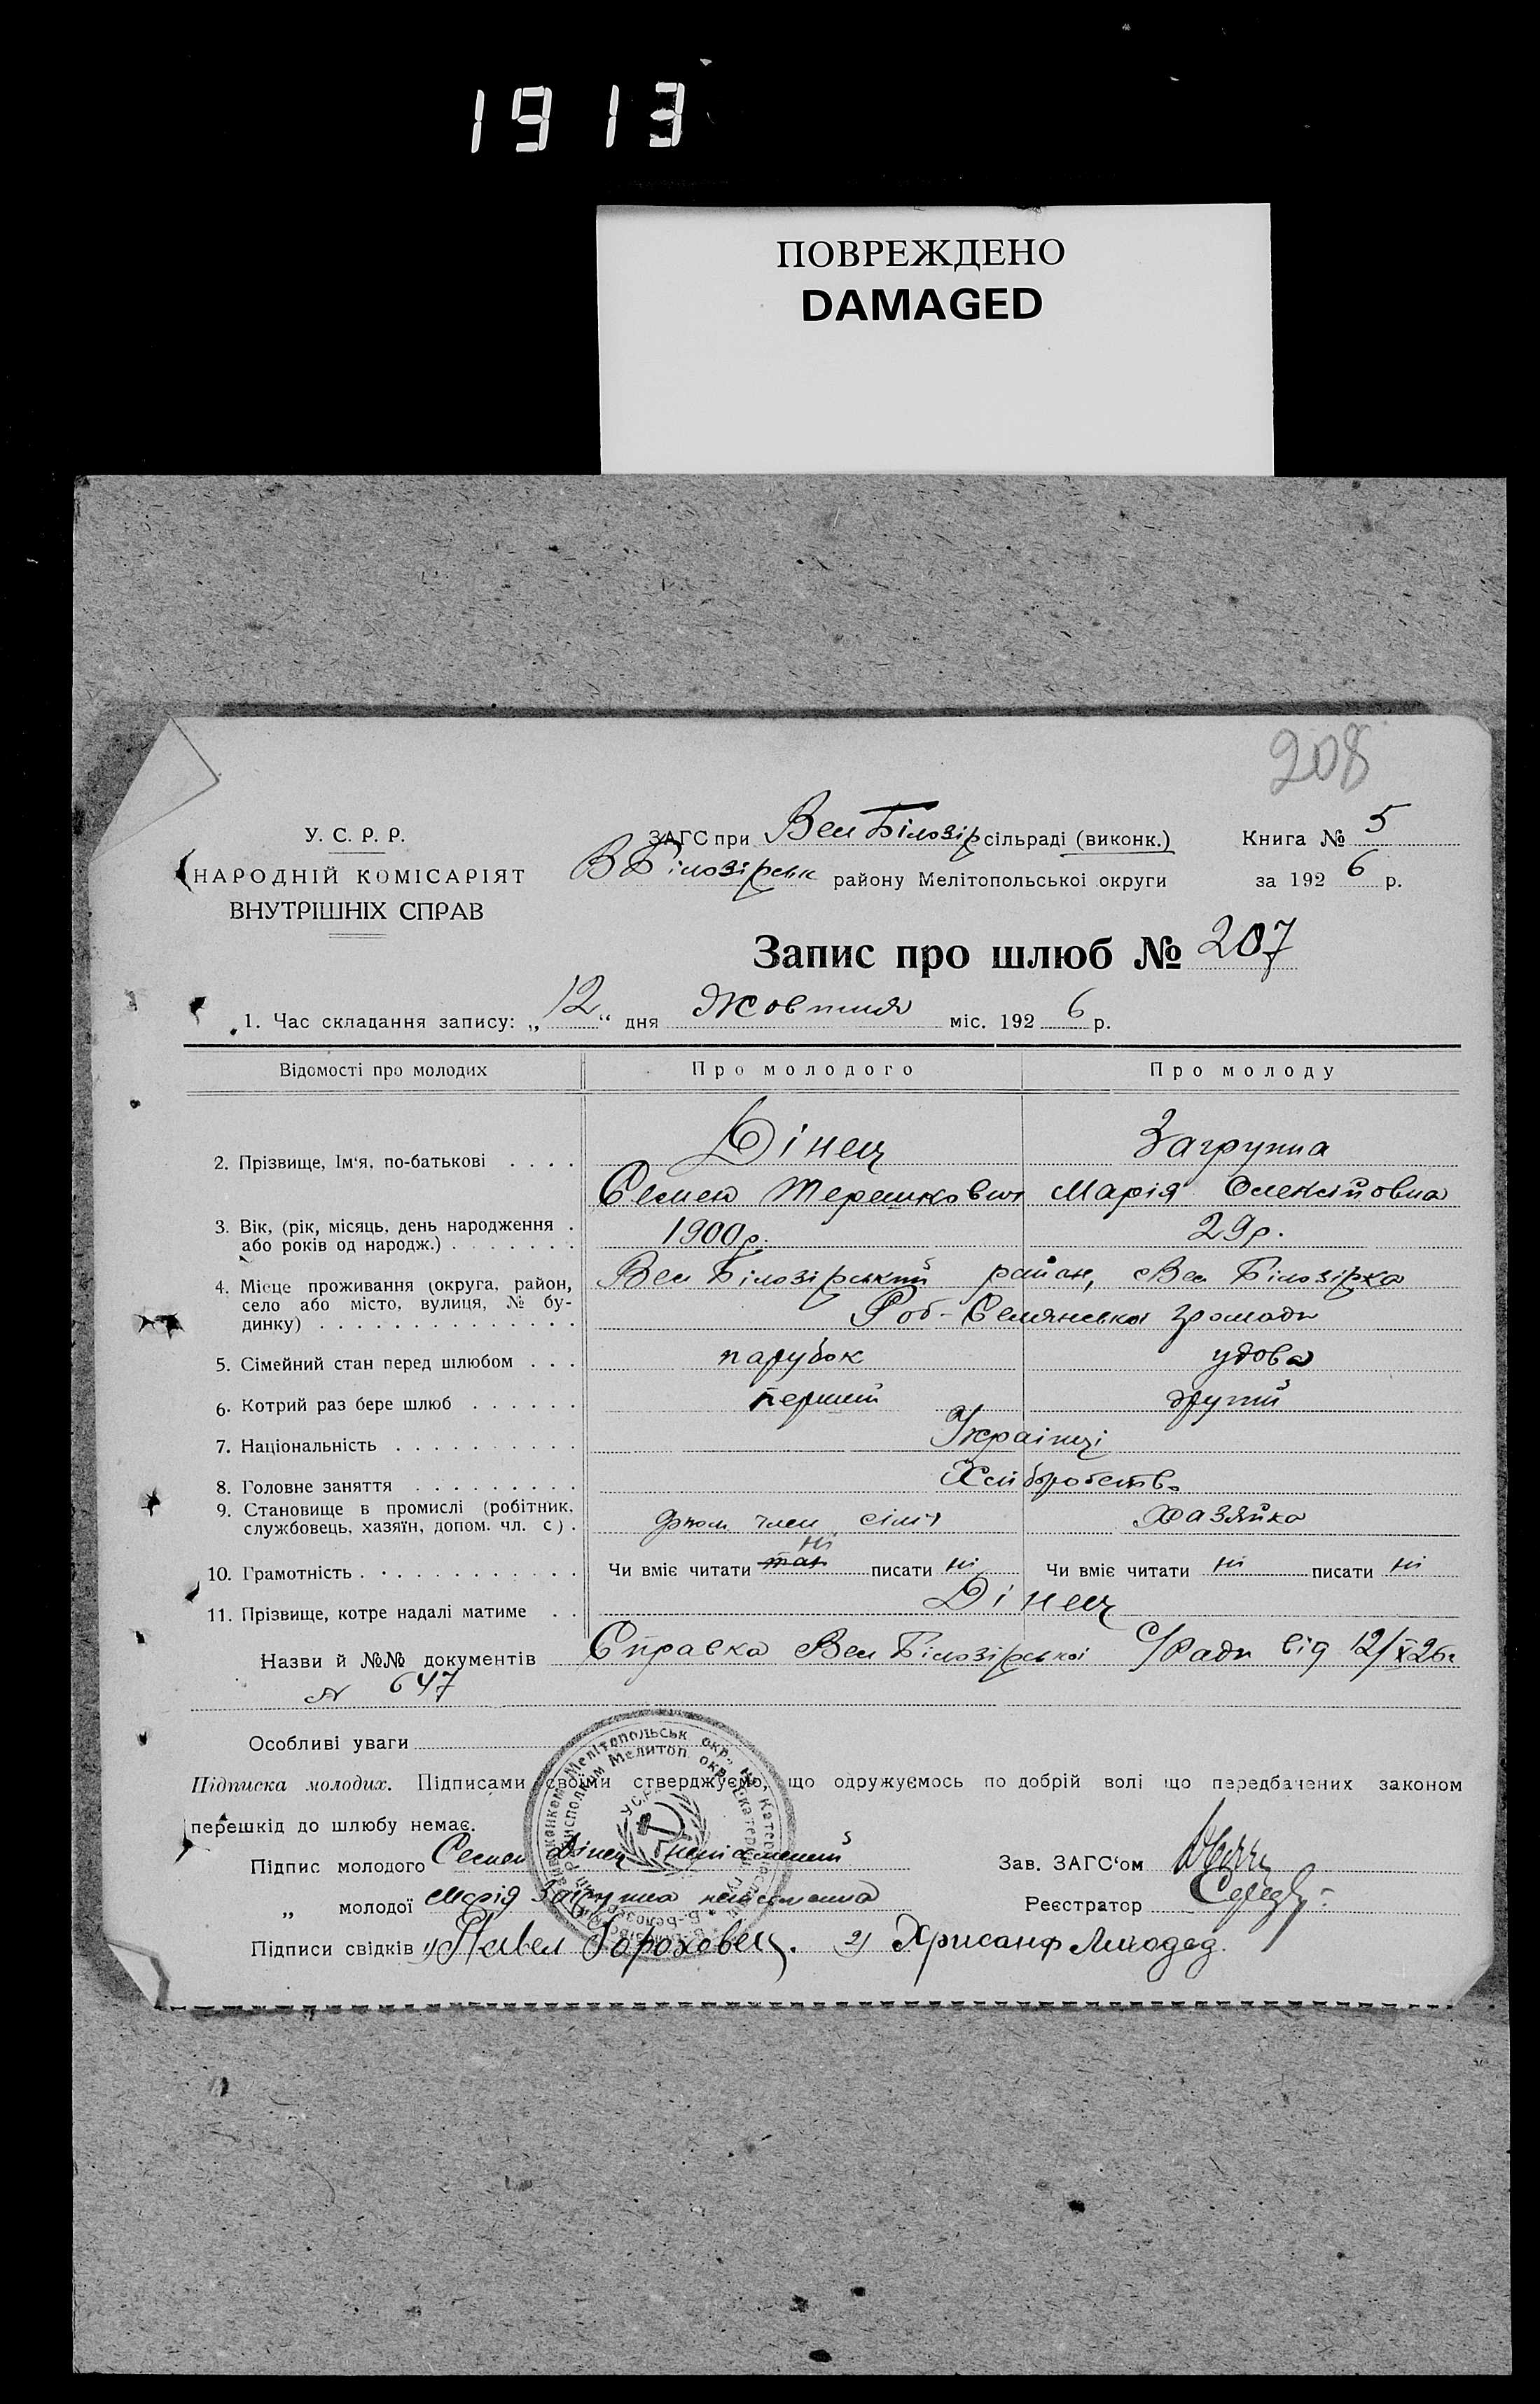 1913
ПОВРЕЖДЕНО
DAMAGED
208
У. С. Р. Р.
НАРОДНІЙ КОМІСАРІЯТ
ВНУТРІШНІХ СПРАВ
ЗАГС при Вел Білозір сільраді (виконк.)
В Білозірськ району Мелітопольської округи
Книга № 5
за 1926 р.
Запис про шлюб № 207
1. Час складання запису: „12“ дня Жовтня міс. 1926 р.
Відомості про молодих Про молодого Про молоду
2. Прізвище, Ім'я, по-батькові . . . . Дінец Загрупна
Семен Терешкович Марія Олексійовна
3. Вік, (рік, місяць, день народження . 1900 р. 29 р.
або років од народж.) . . . . . . .
4. Місце проживання (округа, район, Вел Білозірський район, Вел Білозірка
село або місто, вулиця, № бу-
динку) . . . . . . . . . . . . . . Роб-Селянської громади
5. Сімейний стан перед шлюбом . . . парубок удова
6. Котрий раз бере шлюб . . . . . . перший другий
7. Національність . . . . . . . . . . Українці
8. Головне заняття . . . . . . . . . Хліборобство
9. Становище в промислі (робітник, член сімї хазяйка
службовець, хазяїн, допом. чл. с) .
10. Грамотність . . . . . . . . . . . Чи вміє читати так ні писати ні Чи вміє читати ні писати ні
11. Прізвище, котре надалі матиме . . Дінец
Назви й №№ документів Справка Вел Білозірської С/Ради від 12/X 26 г
N 647
Особливі уваги
Підписка молодих. Підписами своїми стверджуємо, що одружуємось по добрій волі що передбачених законом
перешкід до шлюбу немає.
Підпис молодого Семен Дінец неписменний Зав. ЗАГС'ом
„ молодої Марія Загрупна неписменна Реєстратор
Підписи свідків 1) Павел Гороховец. 2) Хрисанф Лиходед.